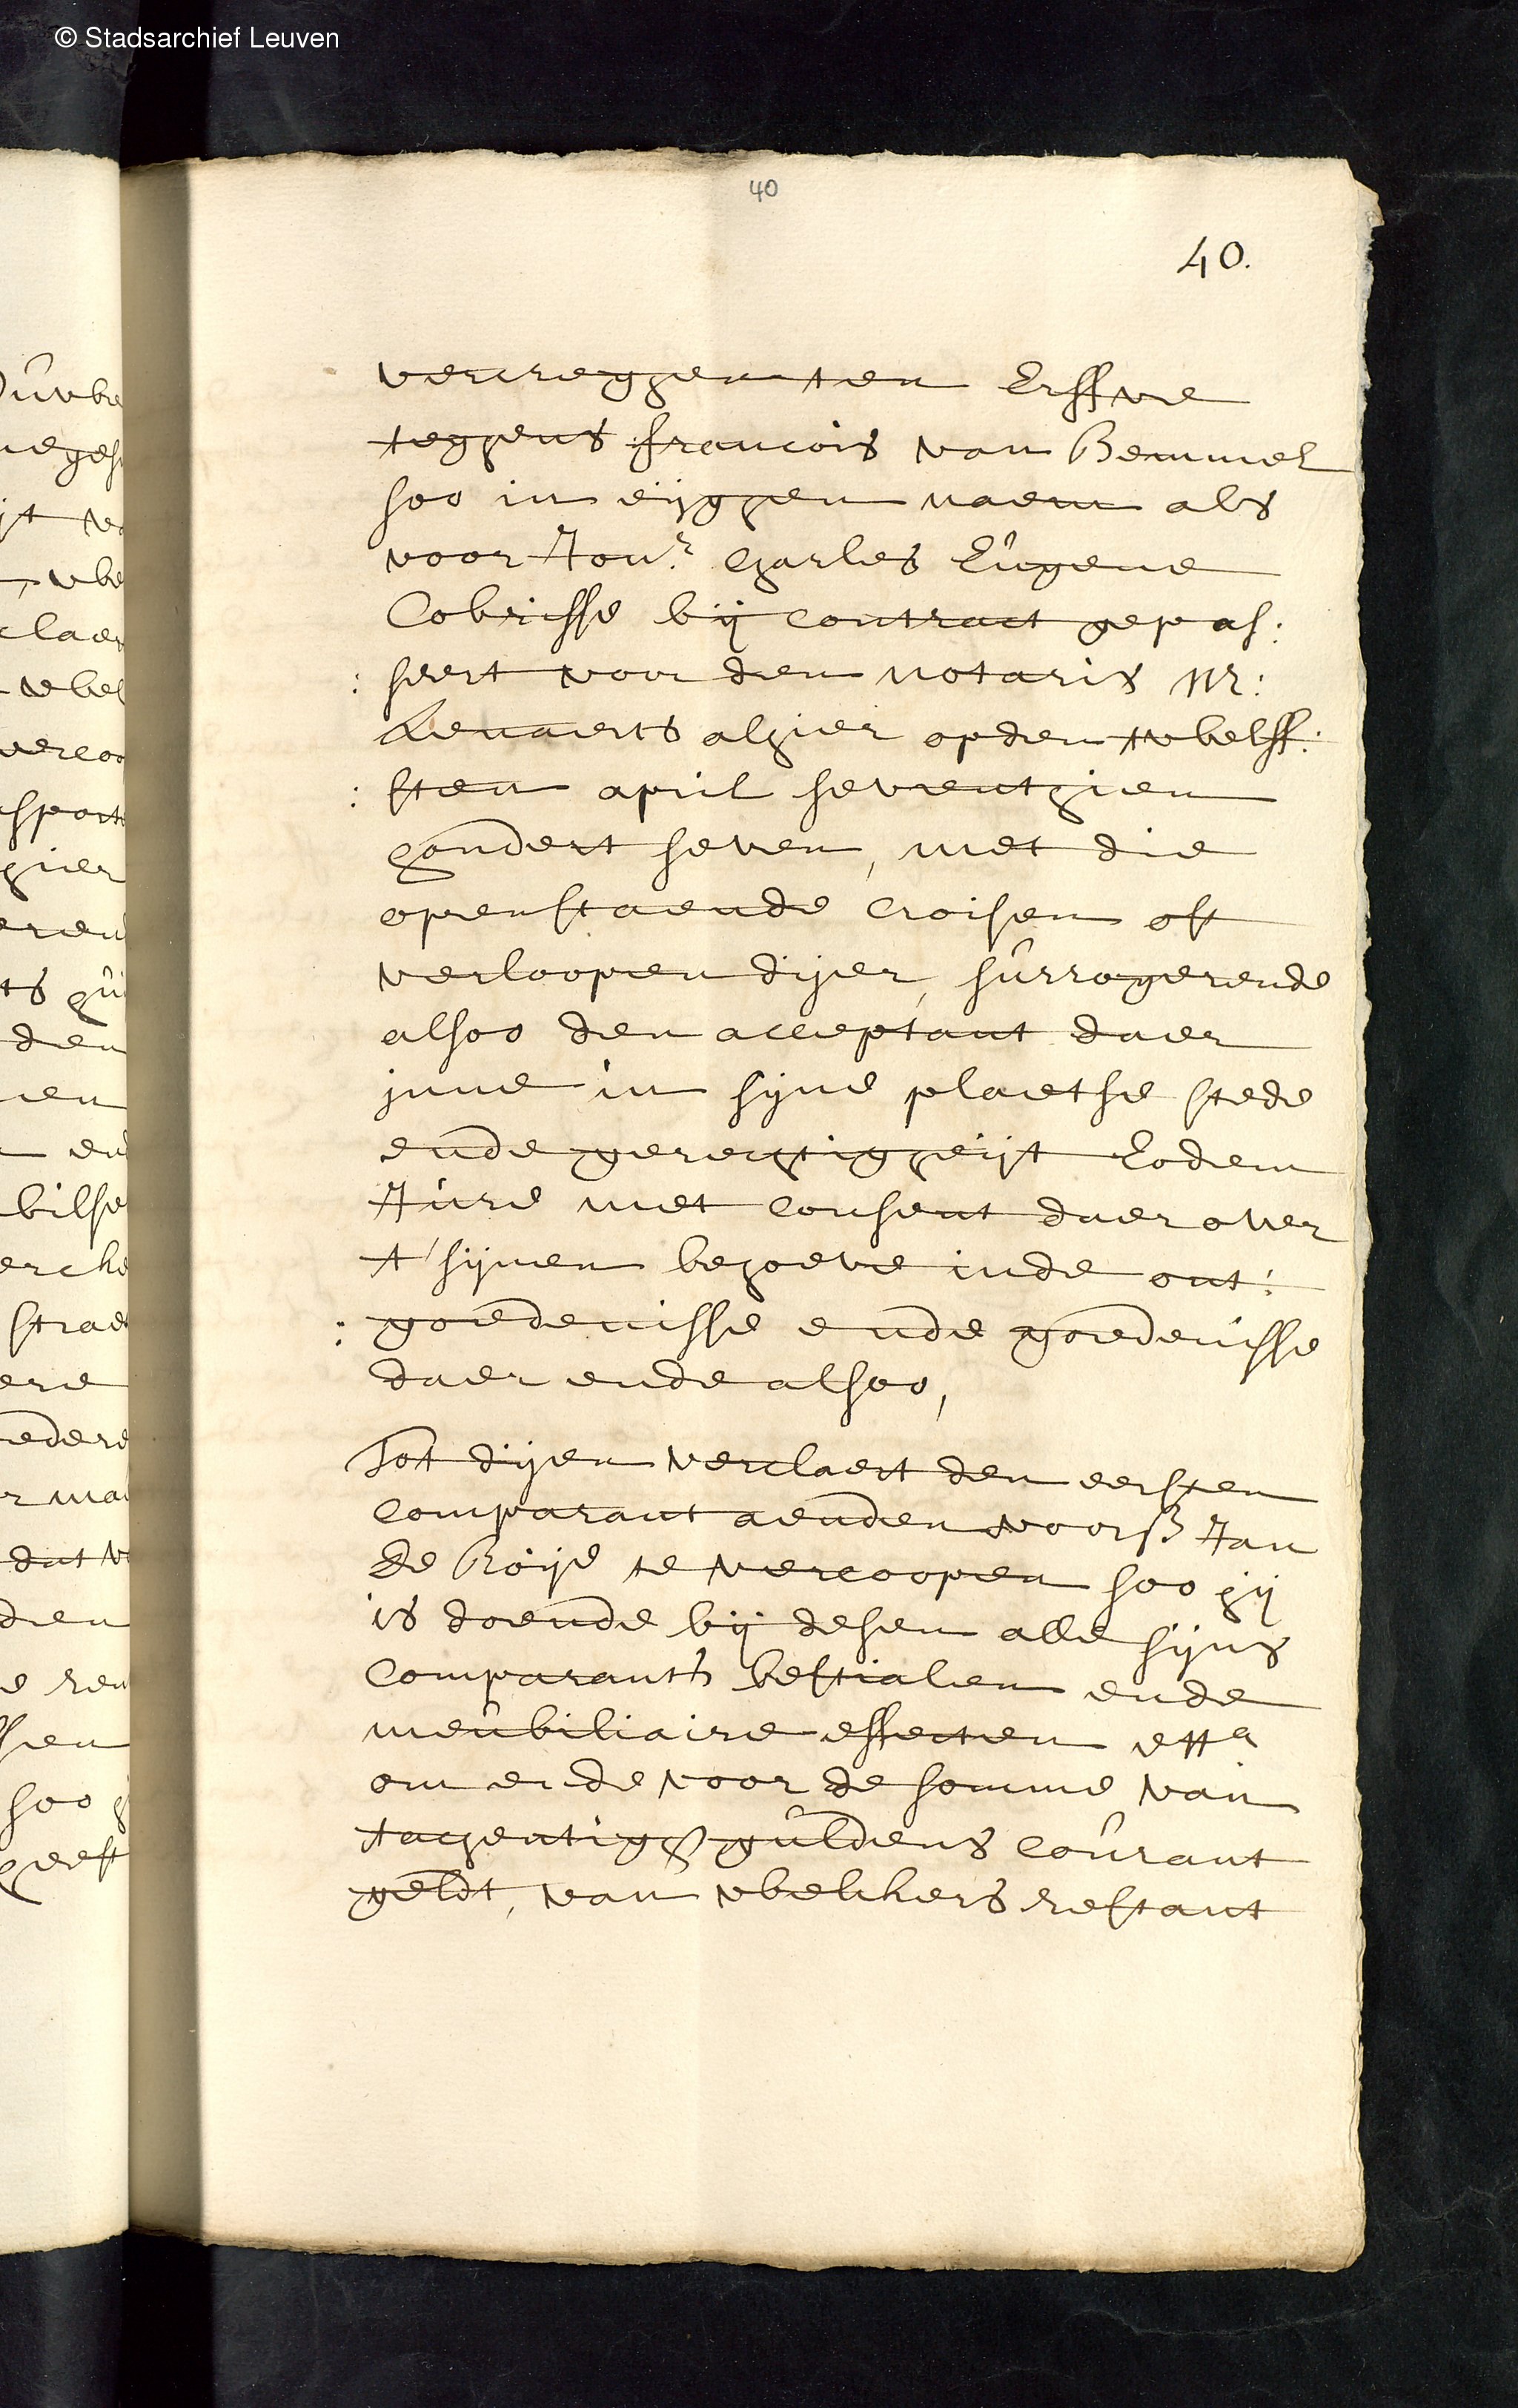 © Stadsarchief Leuven
40
40.
vercreggen ten Erffve
teggens francois van Bemmel
soo in eijggen naem als
voor Jonr. Charles Eugene
Cobrisse bij contract gepas:
: seert voor den notaris M:
Lenaerts alhier opden twelff:
: sten april seventhien
hondert seven, met die
openstaende croisen oft
verloopen dijer, surrogerende
alsoo den acceptant daer
inne in sijne plaetse stede
ende gerechtigheijt Eodem
Jure met consent daer over
t'sijnen behoeve inde ont:
: goedenisse ende goedenisse
daer ende alsoo,
Tot dijen verclaert den eersten
comparant aenden voors Jan
de Roije te vercoopen soo hij
is doende bij desen alle sijns
comparants bestialen ende
meubiliaire effecten etta
om ende voor de somme van
tachentigh guldens courant
geldt, van welckers restant